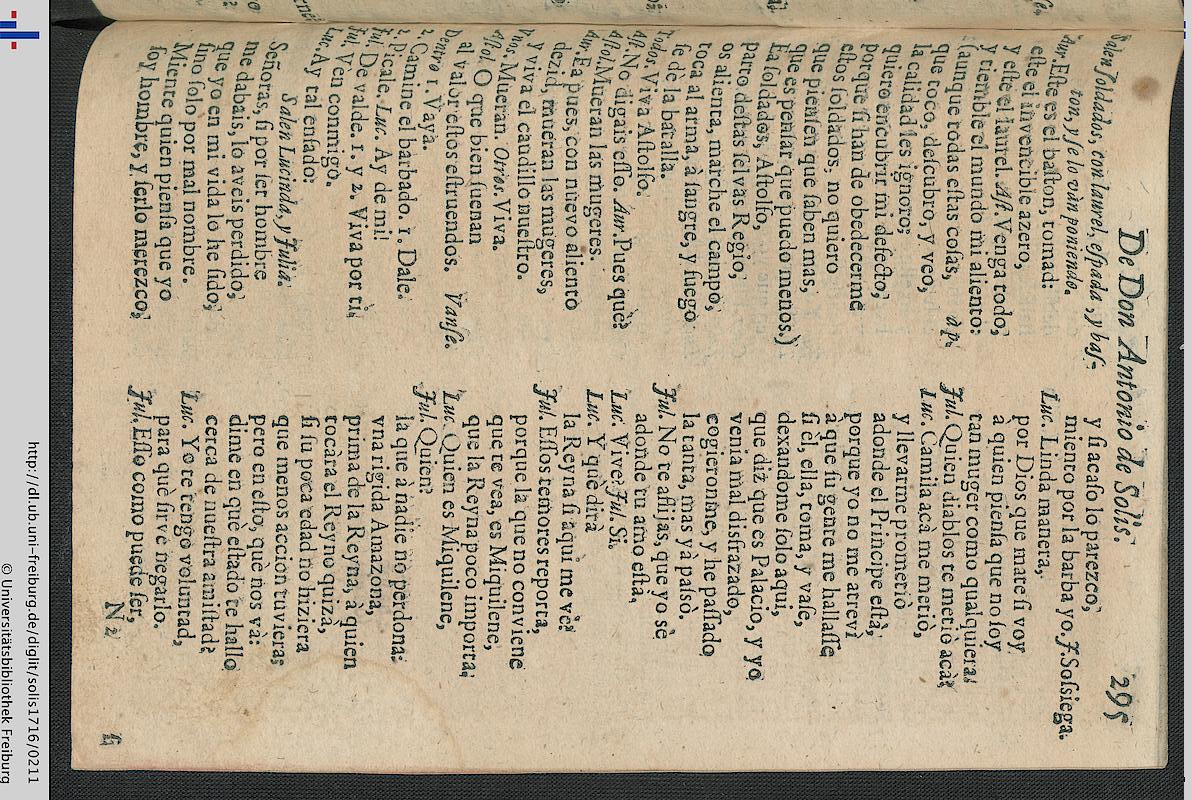 De Don Antonio de Solis. 295
Salen soldados, con laurel, espada, y bas-
ton, y se lo vàn poniendo.
Aur. Este es el baston, tomad:
este el invencible azero,
y este el laurel. Ast. Venga todo,
y tiemble el mundo mi aliento:
(aunque todas estas cosas, ap.
que toco, descubro, y veo,
la calidad les ignoro;
quiero encubrir mi defecto,
porque si han de obedecerme
estos soldados, no quiero
que piensen que saben mas,
que es pensar que puedo menos.)
Ea soldados, Astolfo,
parto destas selvas Regio,
os alienta, marche el campo,
toca al arma, à sangre, y fuego
se dè la batalla.
Todos. Viva Astolfo.
Ast. No digais esso. Aur. Pues què?
Ast. Mueran las mugeres.
Aur. Ea pues, con nuevo aliento
dezid, mueran las mugeres,
y viva el caudillo nuestro.
Vnos. Mueran. Otros. Viva.
Astol. O que bien suenan
al valor estos estruendos. Vanse.
Dentro 1. Vaya.
2. Camine el barbado. 1. Dale.
2. Picale. Luc. Ay de mi!
Jul. De valde. 1. y 2. Viva por ti.
Jul. Ven conmigo.
Luc. Ay tal enfado:
Salen Lucinda, y Julia.
Señoras, si por ser hombre
me dabais, lo aveis perdido,
que yo en mi vida lo he sido,
sino solo por mal nombre.
Miente quien piensa que yo
soy hombre, y serlo merezco,
y si acaso lo parezco,
miento por la barba yo. J. Sossiega.
Luc. Linda manera,
por Dios que mate si voy
a quien piensa que no soy
tan muger como qualquiera!
Jul. Quien diablos te metiò acà?
Luc. Camila acà me metiò,
y llevarme prometiò
adonde el Principe està,
porque yo no me atrevì
à que su gente me hallasse
si èl, ella, toma, y vase,
dexandome solo aqui,
que diz que es Palacio, y yo
venia mal disfrazado,
cogieronme, y he passado
la tanta, mas yà passò.
Jul. No te aflijas, que yo sè
adonde tu amo està,
Luc. Vive? Jul. Si.
Luc. Y què dirà
la Reyna si aqui me vè?
Jul. Essos temores reporta,
porque la que no conviene
que te vea, es Miquilene,
que la Reyna poco importa,
Luc. Quien es Miquilene,
Jul. Quien?
la que à nadie no perdona:
vna rigida Amazona,
prima de la Reyna, à quien
tocàra el Reyno quiza,
si su poca edad no hiziera
que menos acciòn tuviera;
pero en esto, que nos và:
dime en que estado te hallo
cerca de nuestra amistad?
Luc. Yo te tengo voluntad,
para què sirve negarlo.
Jul. Esso como puede ser,
N 2 si
http://dl.ub.uni-freiburg.de/diglit/solis1716/0211
© Universitätsbibliothek Freiburg